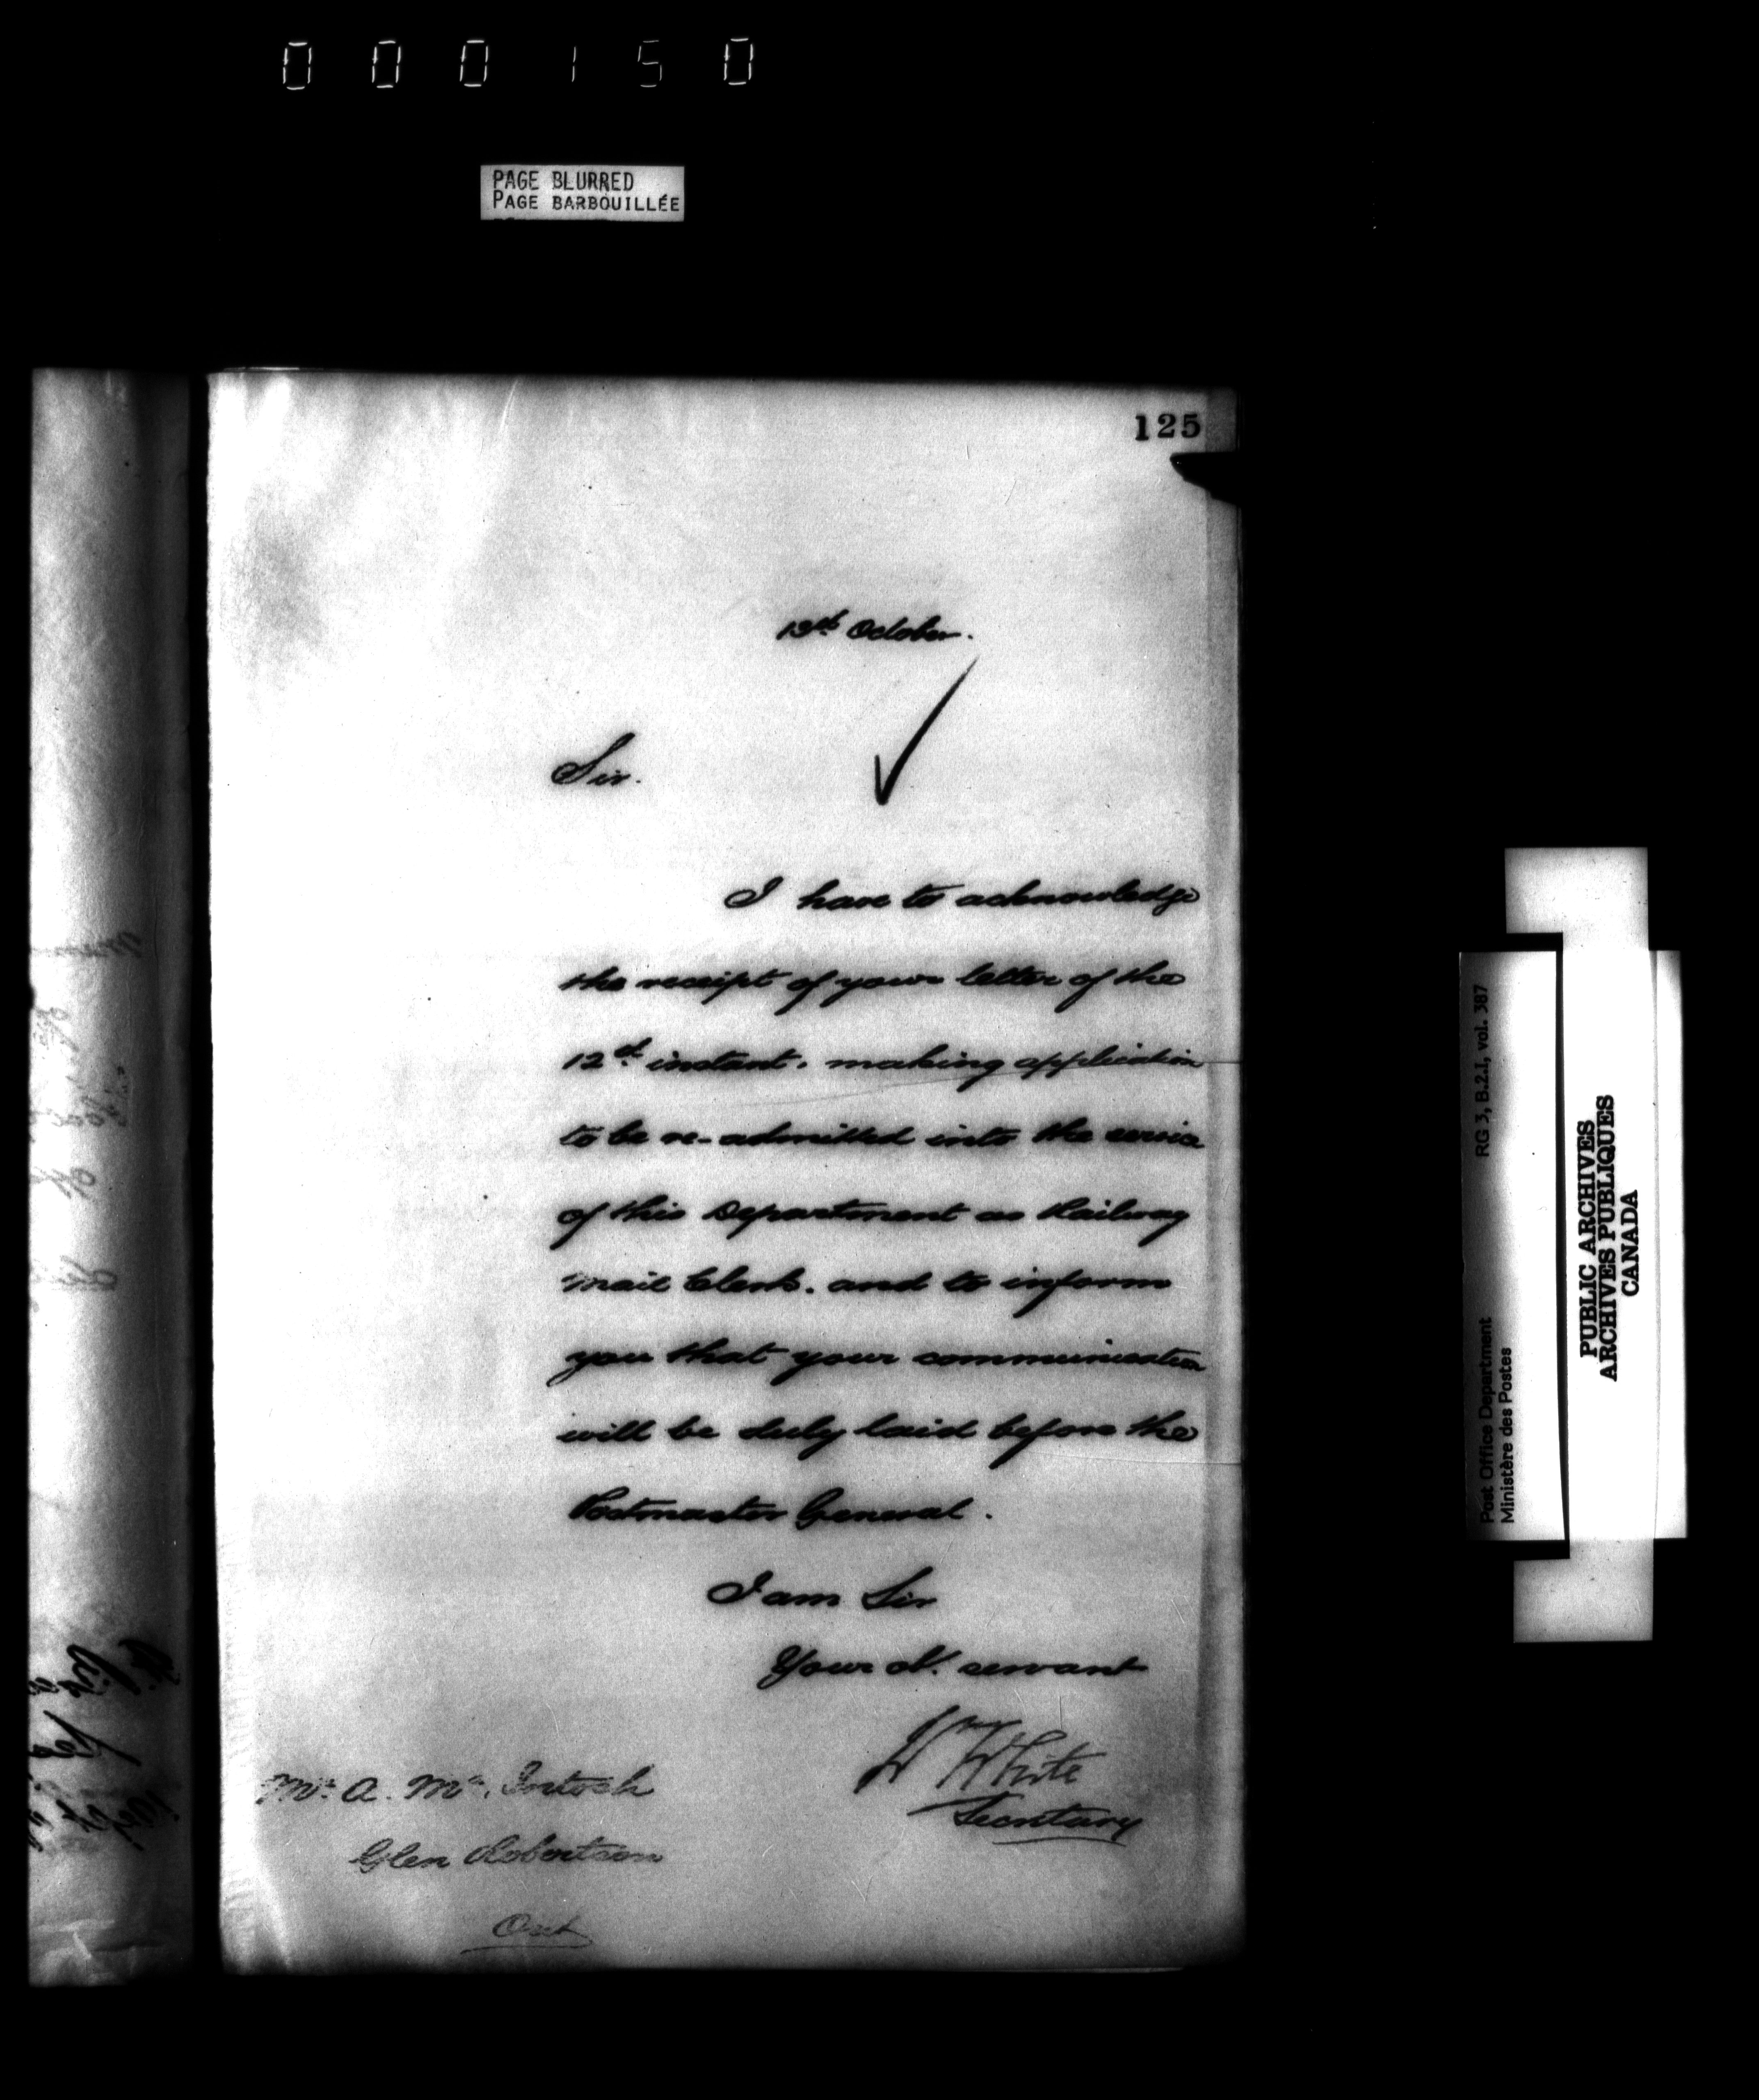 000150
PAGE BLURRED
PAGE BARBOUILLÉE
125
13th October.
Sir.
I have to acknowledge
the receipt of your letter of the
12th instant, making application
to be re-admitted into the service
of this Department as Railway
Mail Clerk, and to inform
you that your communication
will be duly laid before the
Postmaster General.
I am Sir
Your ob. servant
W White
Secretary
Mr. A. Mc. Intosh
Glen Robertson
Ont
RG 3, B.2.I, vol. 387
Post Office Department
Ministère des Postes
PUBLIC ARCHIVES
ARCHIVES PUBLIQUES
CANADA